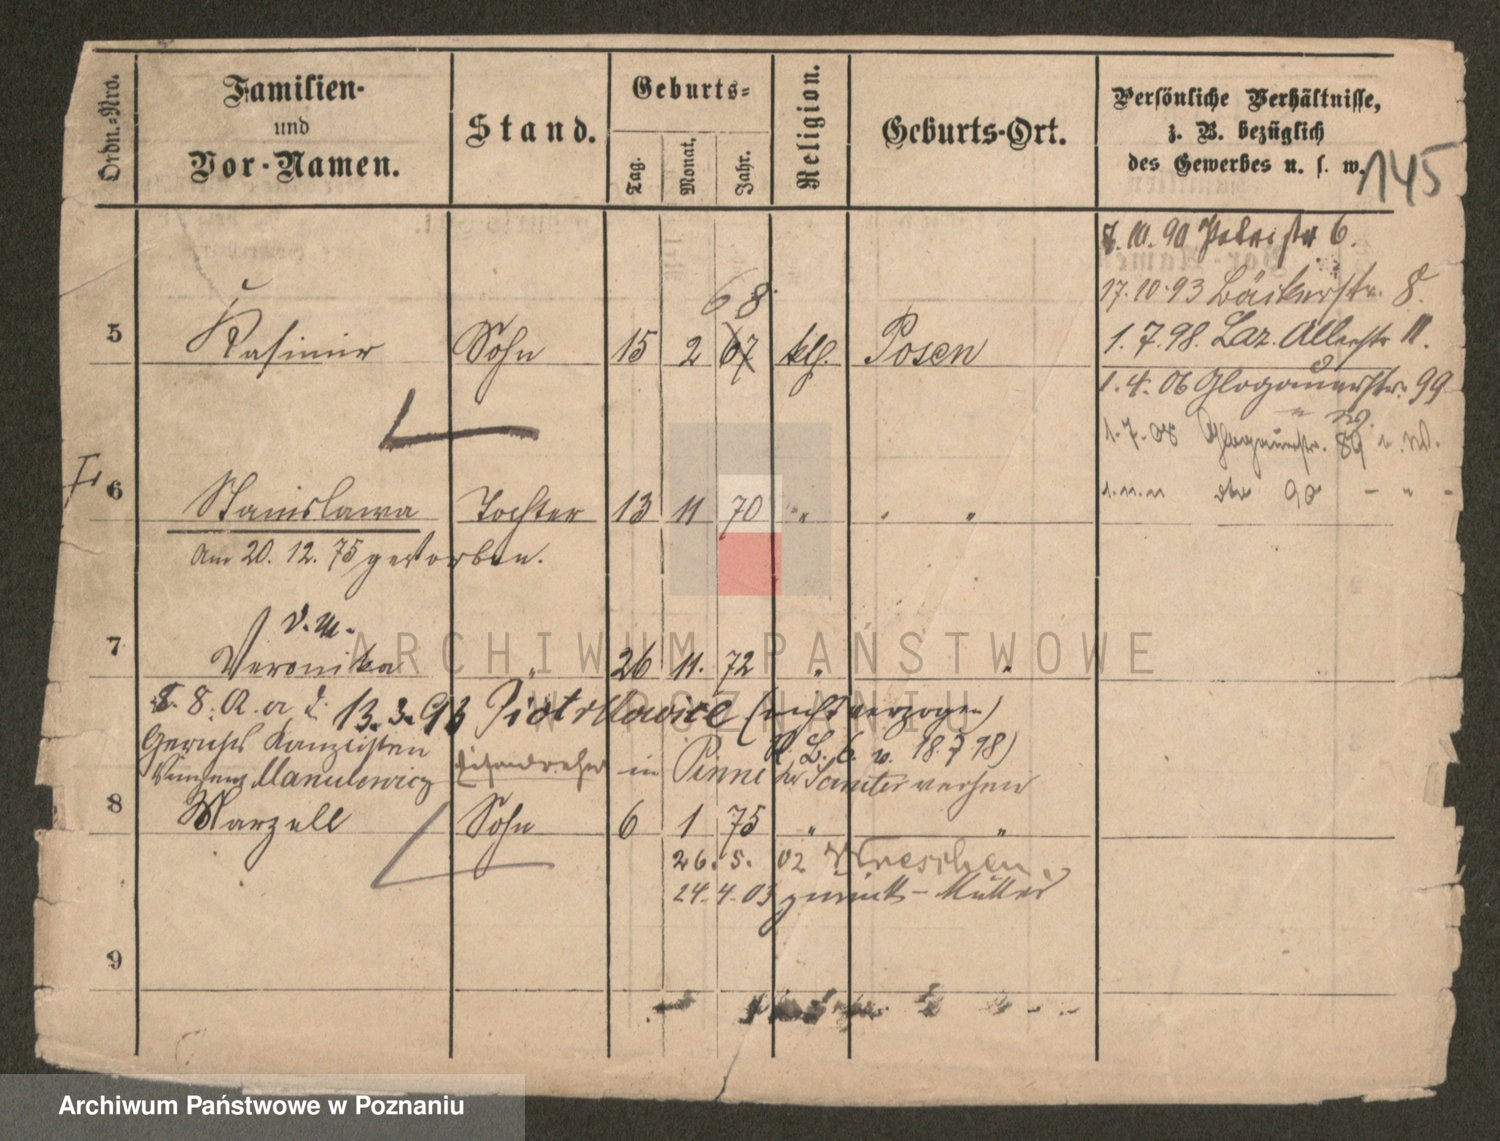 Ordn.-Nro.
Familien-
und
Vor-Namen.
Stand.
Geburts-
Tag.
Monat,
Jahr.
Religion.
Geburts-Ort.
Persönliche Verhältnisse,
z. B. bezüglich
des Gewerbes u. s. w.
145
10. 90 6.
17. 10. 93 Bäckerstr. 8.
1. 7. 98. Laz. 11.
1. 4. 06 Glogauerstr. 99
1. 7. 08 Glogauerstr. 89
90
68
5 Kasimir Sohn 15 2 67 kth. Posen
6 Stanislawa Tochter 13 11 70 " " "
Am 20. 12. 75 gestorben.
v. M.
7 Veronika " 26 11. 72 " "
13. 3. 93 Piotrkowice (nicht verzogen)
Gerichts Kanzlisten 18. 7 98)
Manulewicz in Pinne
8 Marzell Sohn 6 1 75 " "
26. 5. 02 Wreschen.
24. 4. 03 zurück - Mutter
9
ARCHIWUM PAŃSTWOWE
W POZNANIU
Archiwum Państwowe w Poznaniu